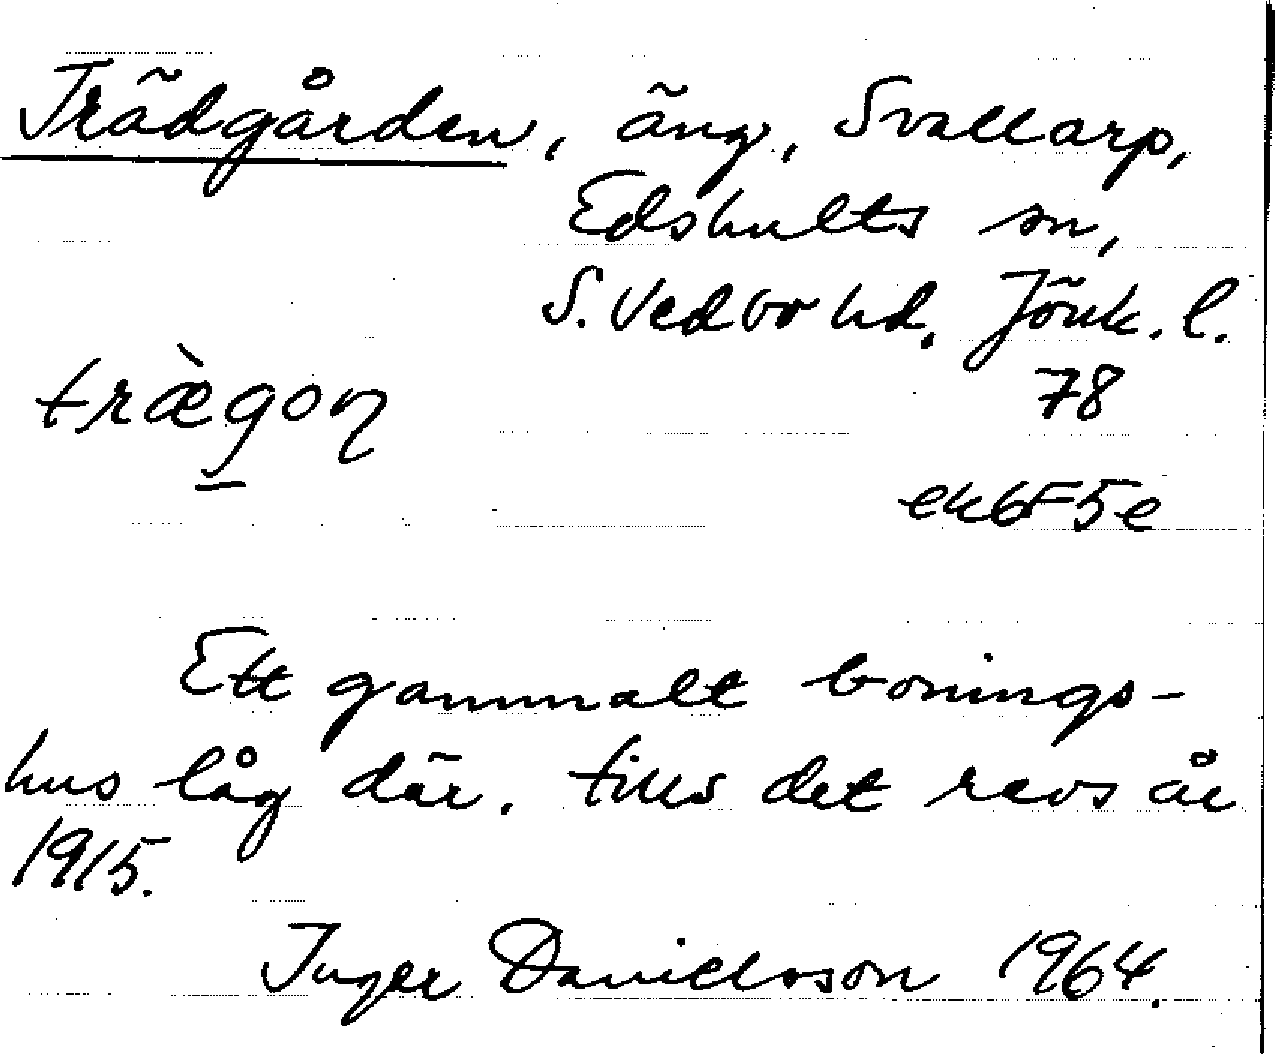 Trädgården, äng, Svallarp,
Edshults sn,
S. Vedbo hd, Jönk. l.
træ̀go̠ɳ
78
ek6F5e
Ett gammalt bonings-
hus låg där, tills det revs år
1915.
Inger Danielsson 1964.